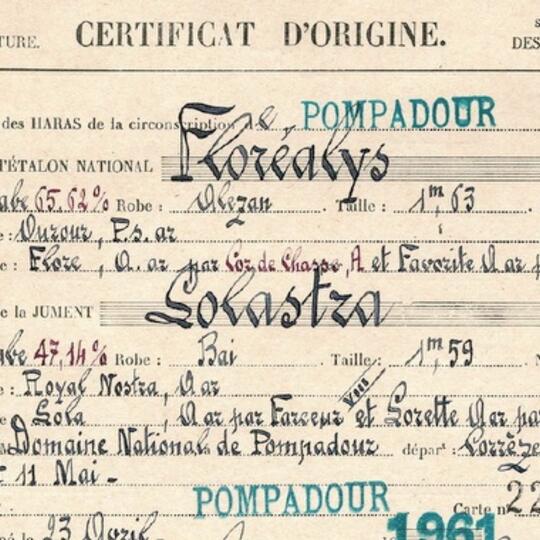 TURE. CERTIFICAT D'ORIGINE.
DES
des HARAS de la circonscription de POMPADOUR
l'ÉTALON NATIONAL Floréalys
abe 65,62% Robe : Alezan . Taille : 1m,63
: Ourour, P.s. ar
e : Flore , A. ar par Cor de Chasse, A et Favorite A ar p
e la JUMENT Lolastra
abe 47,14% Robe : Bai Taille : 1m,59
e : Royal Nostra, A ar
e Lola , A ar par Farceur et Lorette A ar par
Domaine National de Pompadour départ : Corrèze
11 Mai -
POMPADOUR Carte n 22
23 Avril 1961